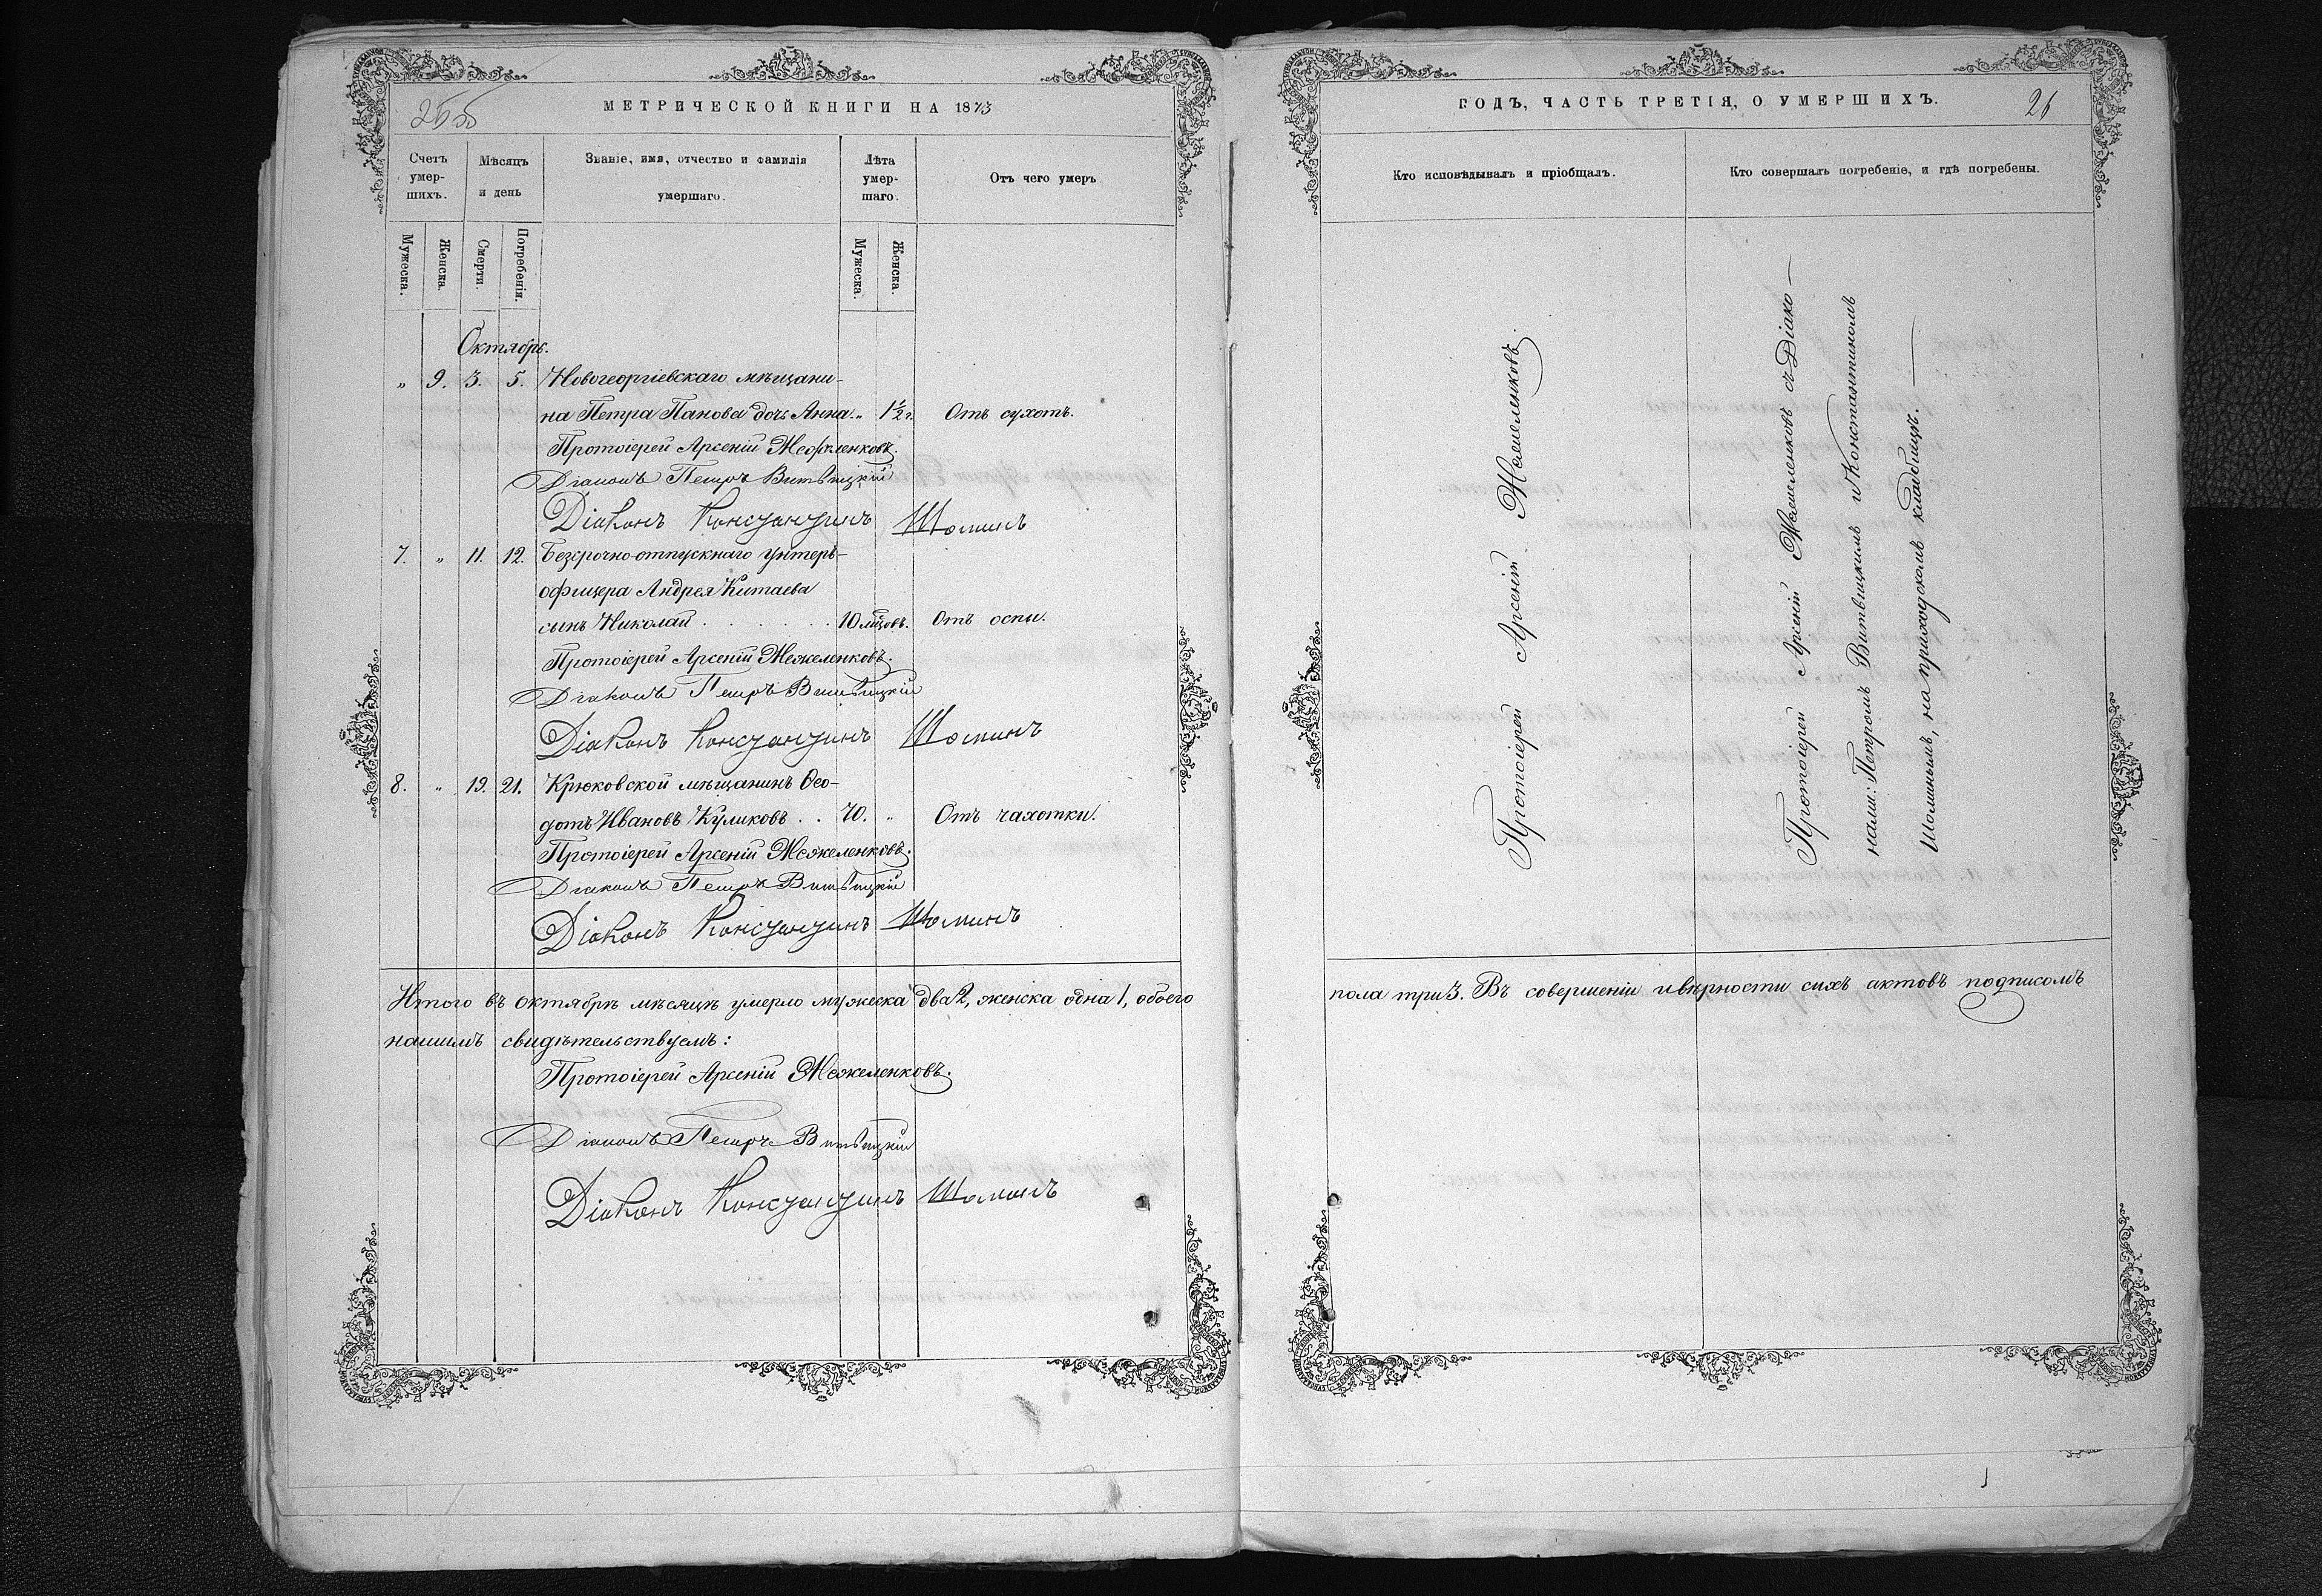 255
МЕТРИЧЕСКОЙ КНИГИ НА 1873
Счетъ умер-шихъ.
Мѣсяцъ и день
Званіе, имя, отчество и фамилія умершаго.
Лѣта умер-шаго.
Отъ чего умеръ
Мужеска.
Женска.
Смерти.
Погребенія.
Мужеска.
Женска.
Октябрь.
„ 9. 3. 5. Новогеоргіевскаго мѣщани-
на Петра Панова дочь Анна. „ 1½ г. Отъ сухотъ.
Протоіерей Арсеній Межеленковъ.
Діаконъ Петръ Витвицкій
Діаконъ Константинъ Шоминъ
7. „ 11. 12. Безсрочно-отпускнаго унтеръ-
офицера Андрея Китаева
сынъ Николай . . . . . . 10 мѣцовъ. Отъ оспы.
Протоіерей Арсеній Межеленковъ.
Діаконъ Петръ Витвицкій
Діаконъ Константинъ Шоминъ
8. „ 19. 21. Крюковской мѣщанинъ Ѳео-
дотъ Ивановъ Куликовъ . . 70. „ Отъ чахотки.
Протоіерей Арсеній Межеленковъ.
Діаконъ Петръ Витвицкій
Діаконъ Константинъ Шоминъ
Итого въ октябрѣ мѣсяцѣ умерло мужеска два 2, женска одна 1, обоего
нашимъ свидѣтельствуемъ:
Протоіерей Арсеній Межеленковъ.
Діаконъ Петръ Витвицкій
Діаконъ Константинъ Шоминъ
ГОДЪ, ЧАСТЬ ТРЕТІЯ, О УМЕРШИХЪ.
26
Кто исповѣдывалъ и пріобщалъ.
Кто совершалъ погребеніе, и гдѣ погребены.
Протоіерей Арсеній Межеленковъ.
Протоіерей Арсеній Межеленковъ съ Діако-
нами: Петромъ Витвицкимъ и Константиномъ
Шоминымъ, на приходскомъ кладбищѣ.
пола три 3. Въ совершеніи и вѣрности сихъ актовъ подписомъ